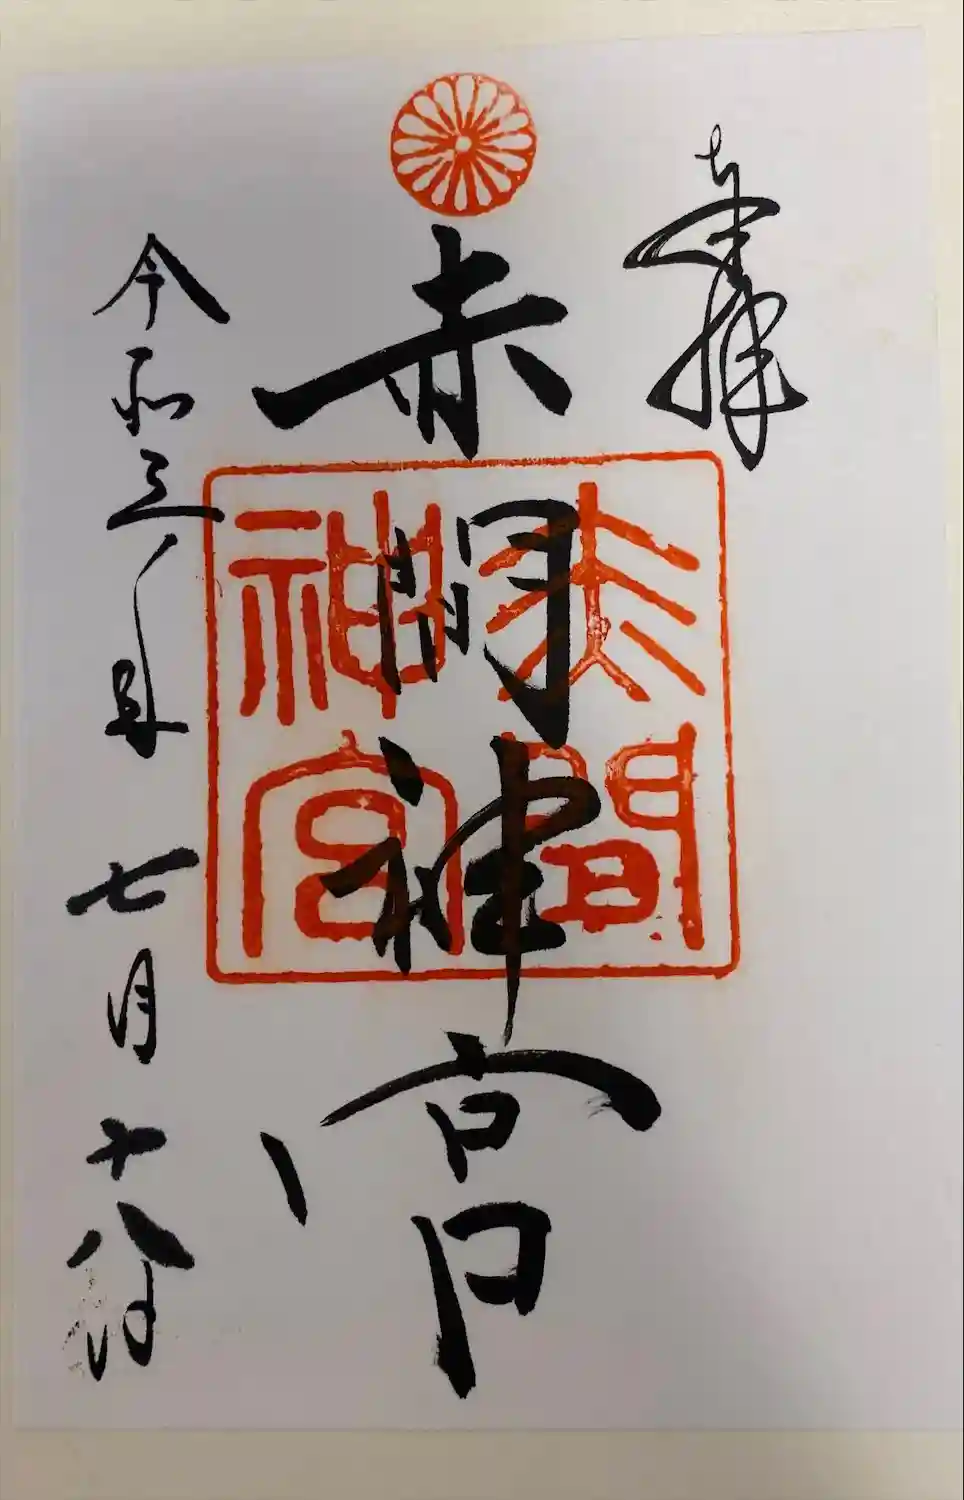 奉拝
赤間神宮
赤間
神宮
令和三年七月十八日